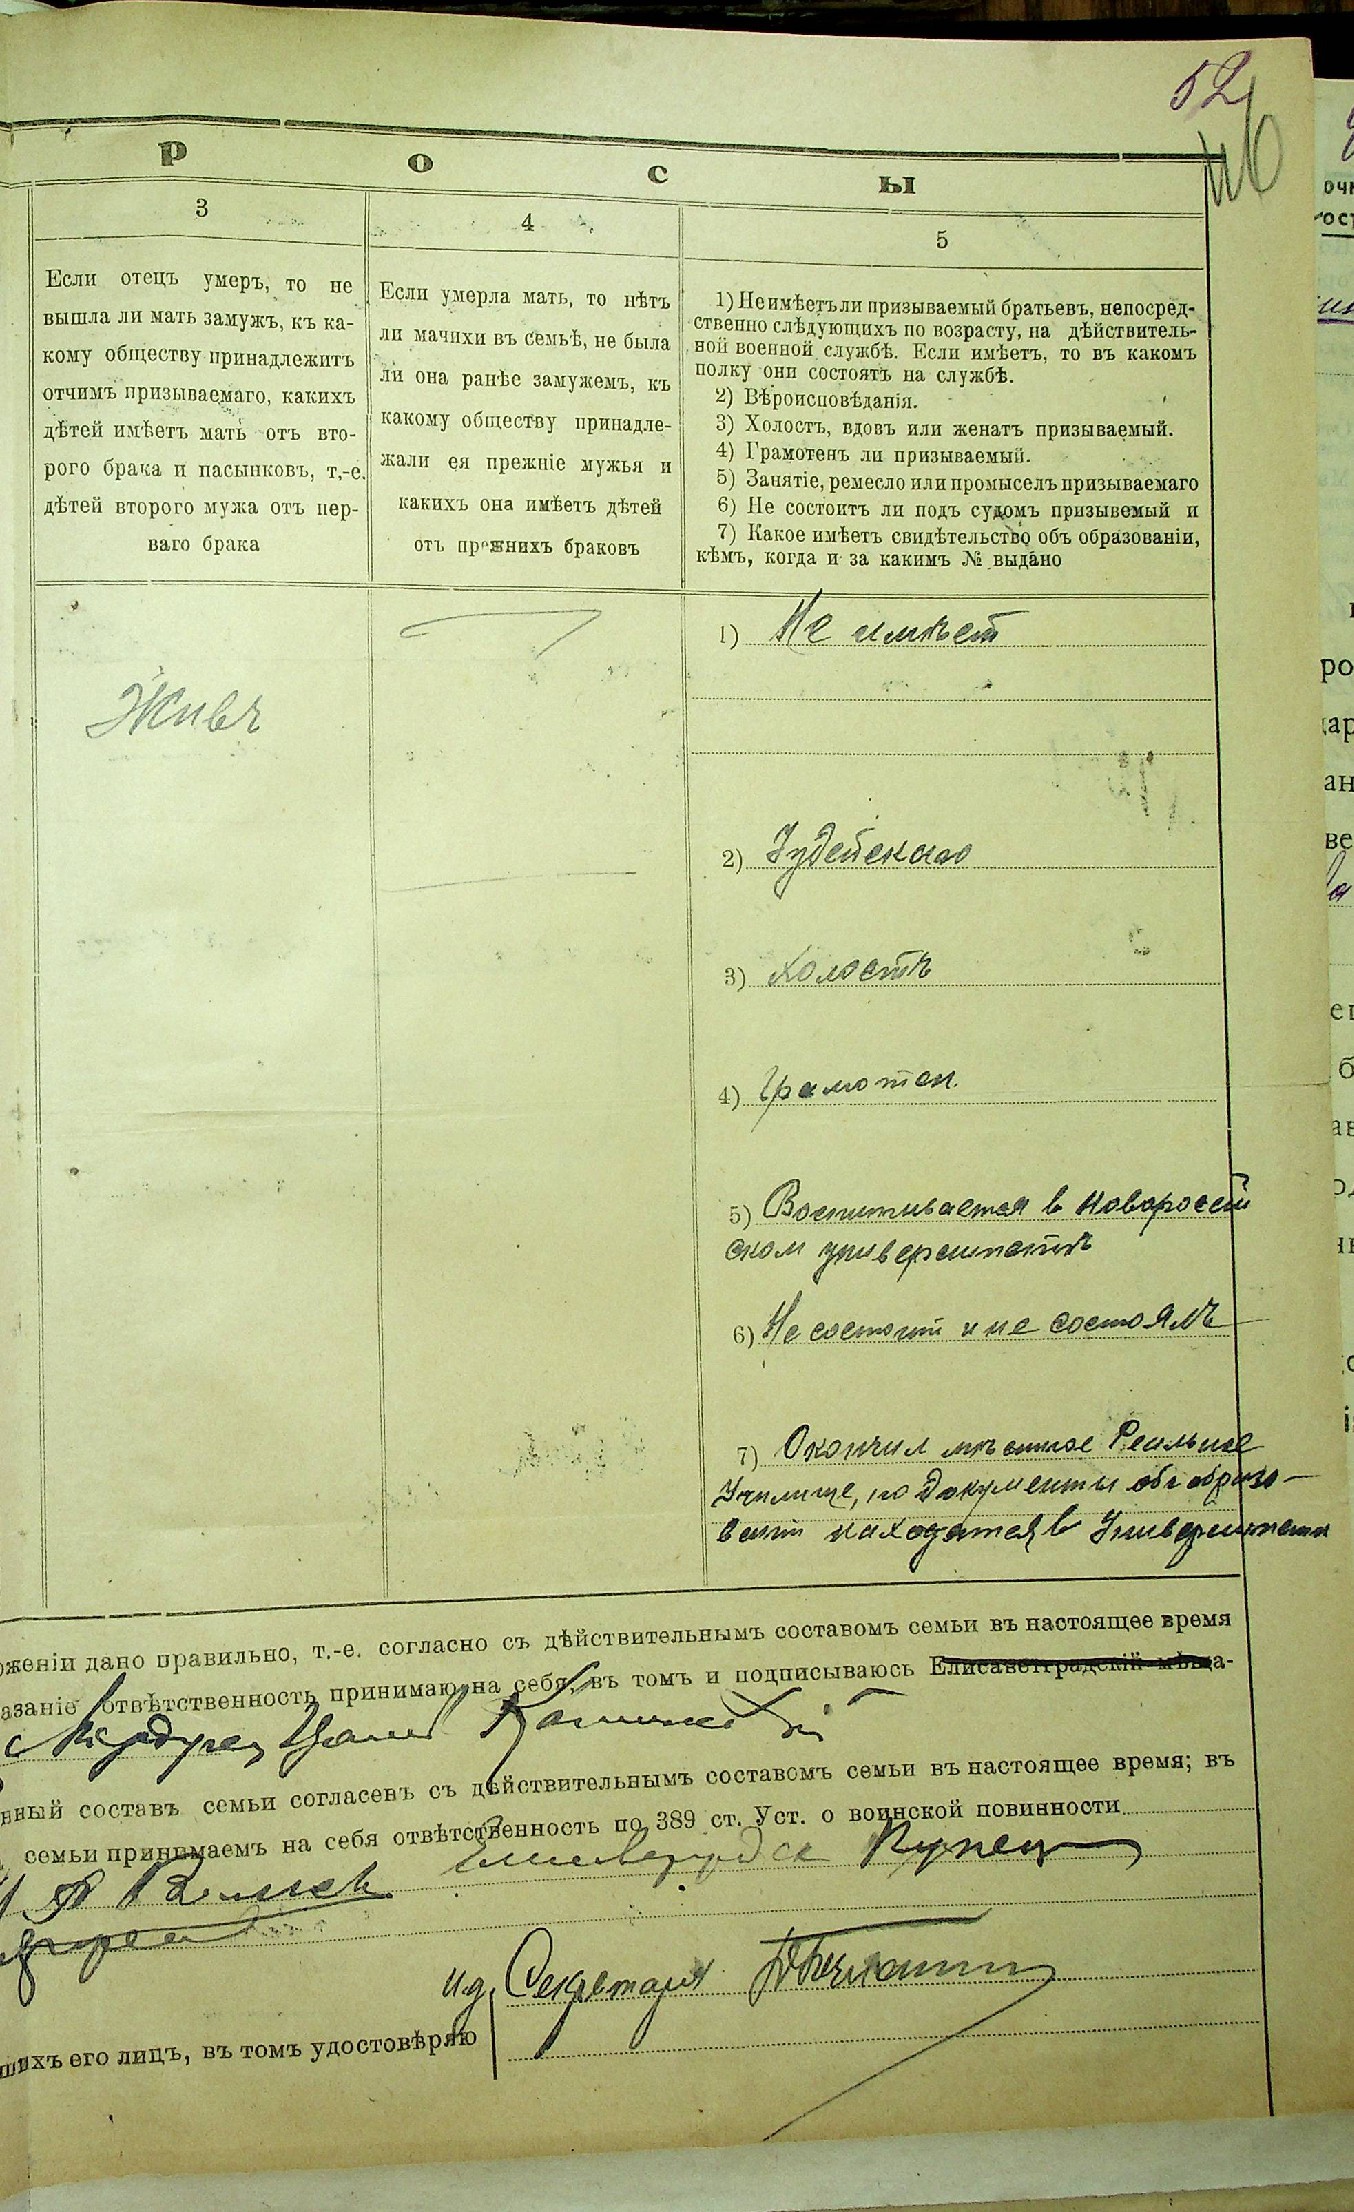 52
46
Р О С Ы
3
Если отецъ умеръ, то не
вышла ли мать замужъ, къ ка-
кому обществу принадлежитъ
отчимъ призываемаго, какихъ
дѣтей имѣетъ мать отъ вто-
рого брака и пасынковъ, т.-е.
дѣтей второго мужа отъ пер-
ваго брака
Живъ
4
Если умерла мать, то нѣтъ
ли мачихи въ семьѣ, не была
ли она ранѣе замужемъ, къ
какому обществу принадле-
жали ея прежніе мужья и
какихъ она имѣетъ дѣтей
отъ прежнихъ браковъ
5
1) Не имѣетъ ли призываемый братьевъ, непосред-
ственно слѣдующихъ по возрасту, на дѣйствитель-
ной военной службѣ. Если имѣетъ, то въ какомъ
полку они состоятъ на службѣ.
2) Вѣроисповѣданія.
3) Холостъ, вдовъ или женатъ призываемый.
4) Грамотенъ ли призываемый.
5) Занятіе, ремесло или промыселъ призываемаго
6) Не состоитъ ли подъ судомъ призывемый и
7) Какое имѣетъ свидѣтельство объ образованіи,
кѣмъ, когда и за какимъ № выдано
1) Не имѣет
2) Іудейскаго
3) Холостъ
4) Грамотен.
5) Воспитывается в Новоросстій
ском университетѣ
6) Не состоит и не состоялъ
7) Окончил мѣстное Реальное
Училище, но документы объ образо-
ваніи находятся в Университете
оженіи дано правильно, т.-е. согласно съ дѣйствительнымъ составомъ семьи въ настоящее время
азаніе отвѣтственность принимаю на себя, въ томъ и подписываюсь Елисаветградскій мѣща-
нный составъ семьи согласенъ съ дѣйствительнымъ составомъ семьи въ настоящее время; въ
семьи принимаемъ на себя отвѣтственность по 389 ст. Уст. о воинской повинности
Купец
ид. Секретаря
шихъ его лицъ, въ томъ удостовѣряю